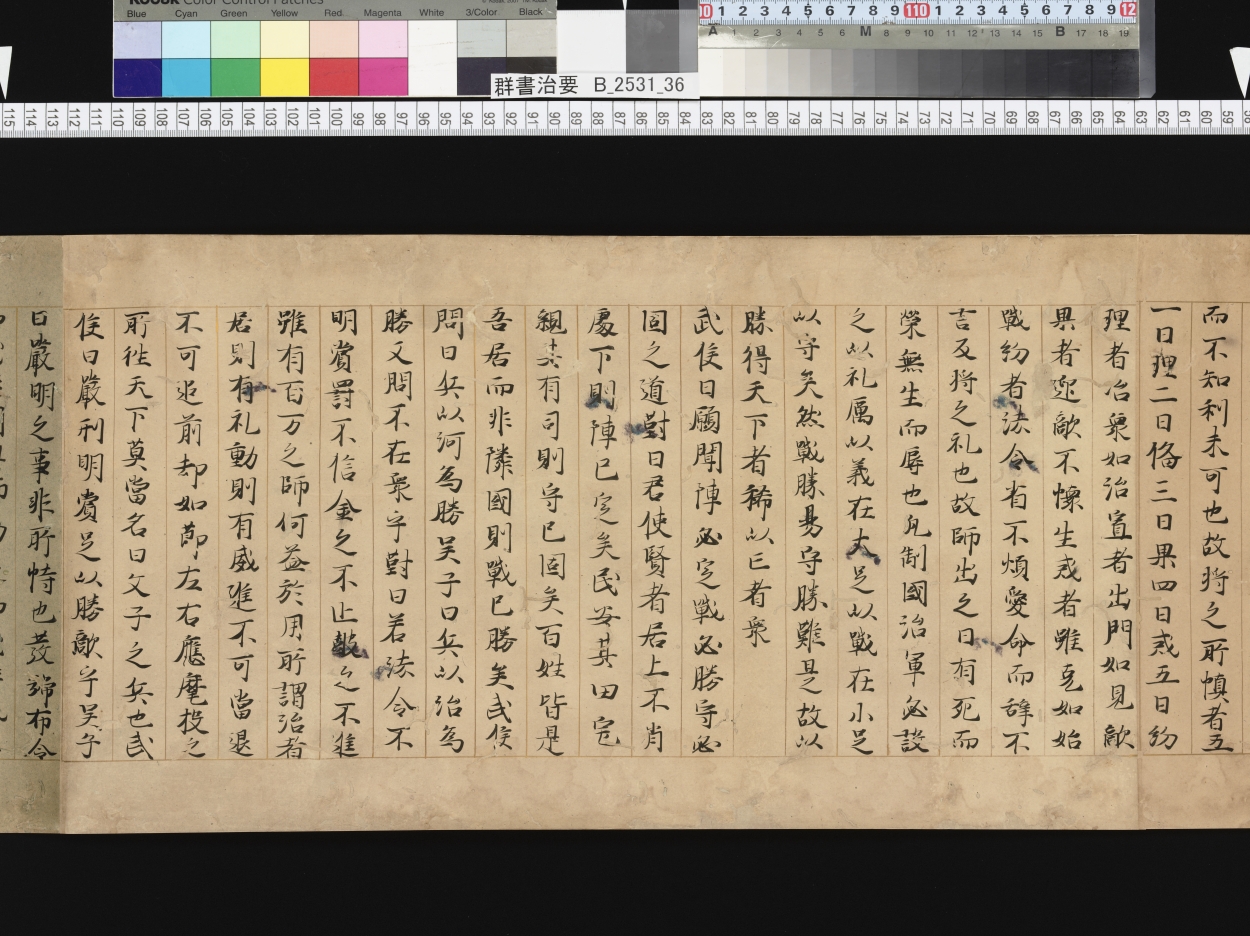 KODAK Color Control Patches
Blue Cyan Green Yellow Red Magenta White 3/Color Black
群書治要 B_2531_36
而不知利未可也故将之所慎者五
一曰理二曰俻三曰果四曰戒五曰約
理者治衆如治寡者出門如見敵
果者迎敵不懐生戒者雖克如始
戦約者法令省不煩愛命而辞不
言反将之礼也故師出之日有死而
榮無生而辱也凡制國治軍必設
之以礼厲以義在大足以戰在小足
以守矣然戰勝易守勝難是故以
勝得天下者稀以亡者衆
武侯曰願聞陣必定戰必勝守必
固之道對曰君使賢者居上不肖
處下則陣已定矣民安其田宅
親其有司則守已固矣百姓皆是
吾居而非隣國則戰已勝矣武侯
問曰兵以何為勝吴子曰兵以治為
勝又問不在衆乎對曰若法令不
明賞罰不信金之不止鼓之不進
雖有百万之師何益於用所謂治者
居則有礼動則有威進不可當退
不可追前却如節左右應麾投之
所往天下莫當名曰父子之兵也武
侯曰嚴刑明賞足以勝敵乎吴子
曰嚴明之事非所恃也發号布令